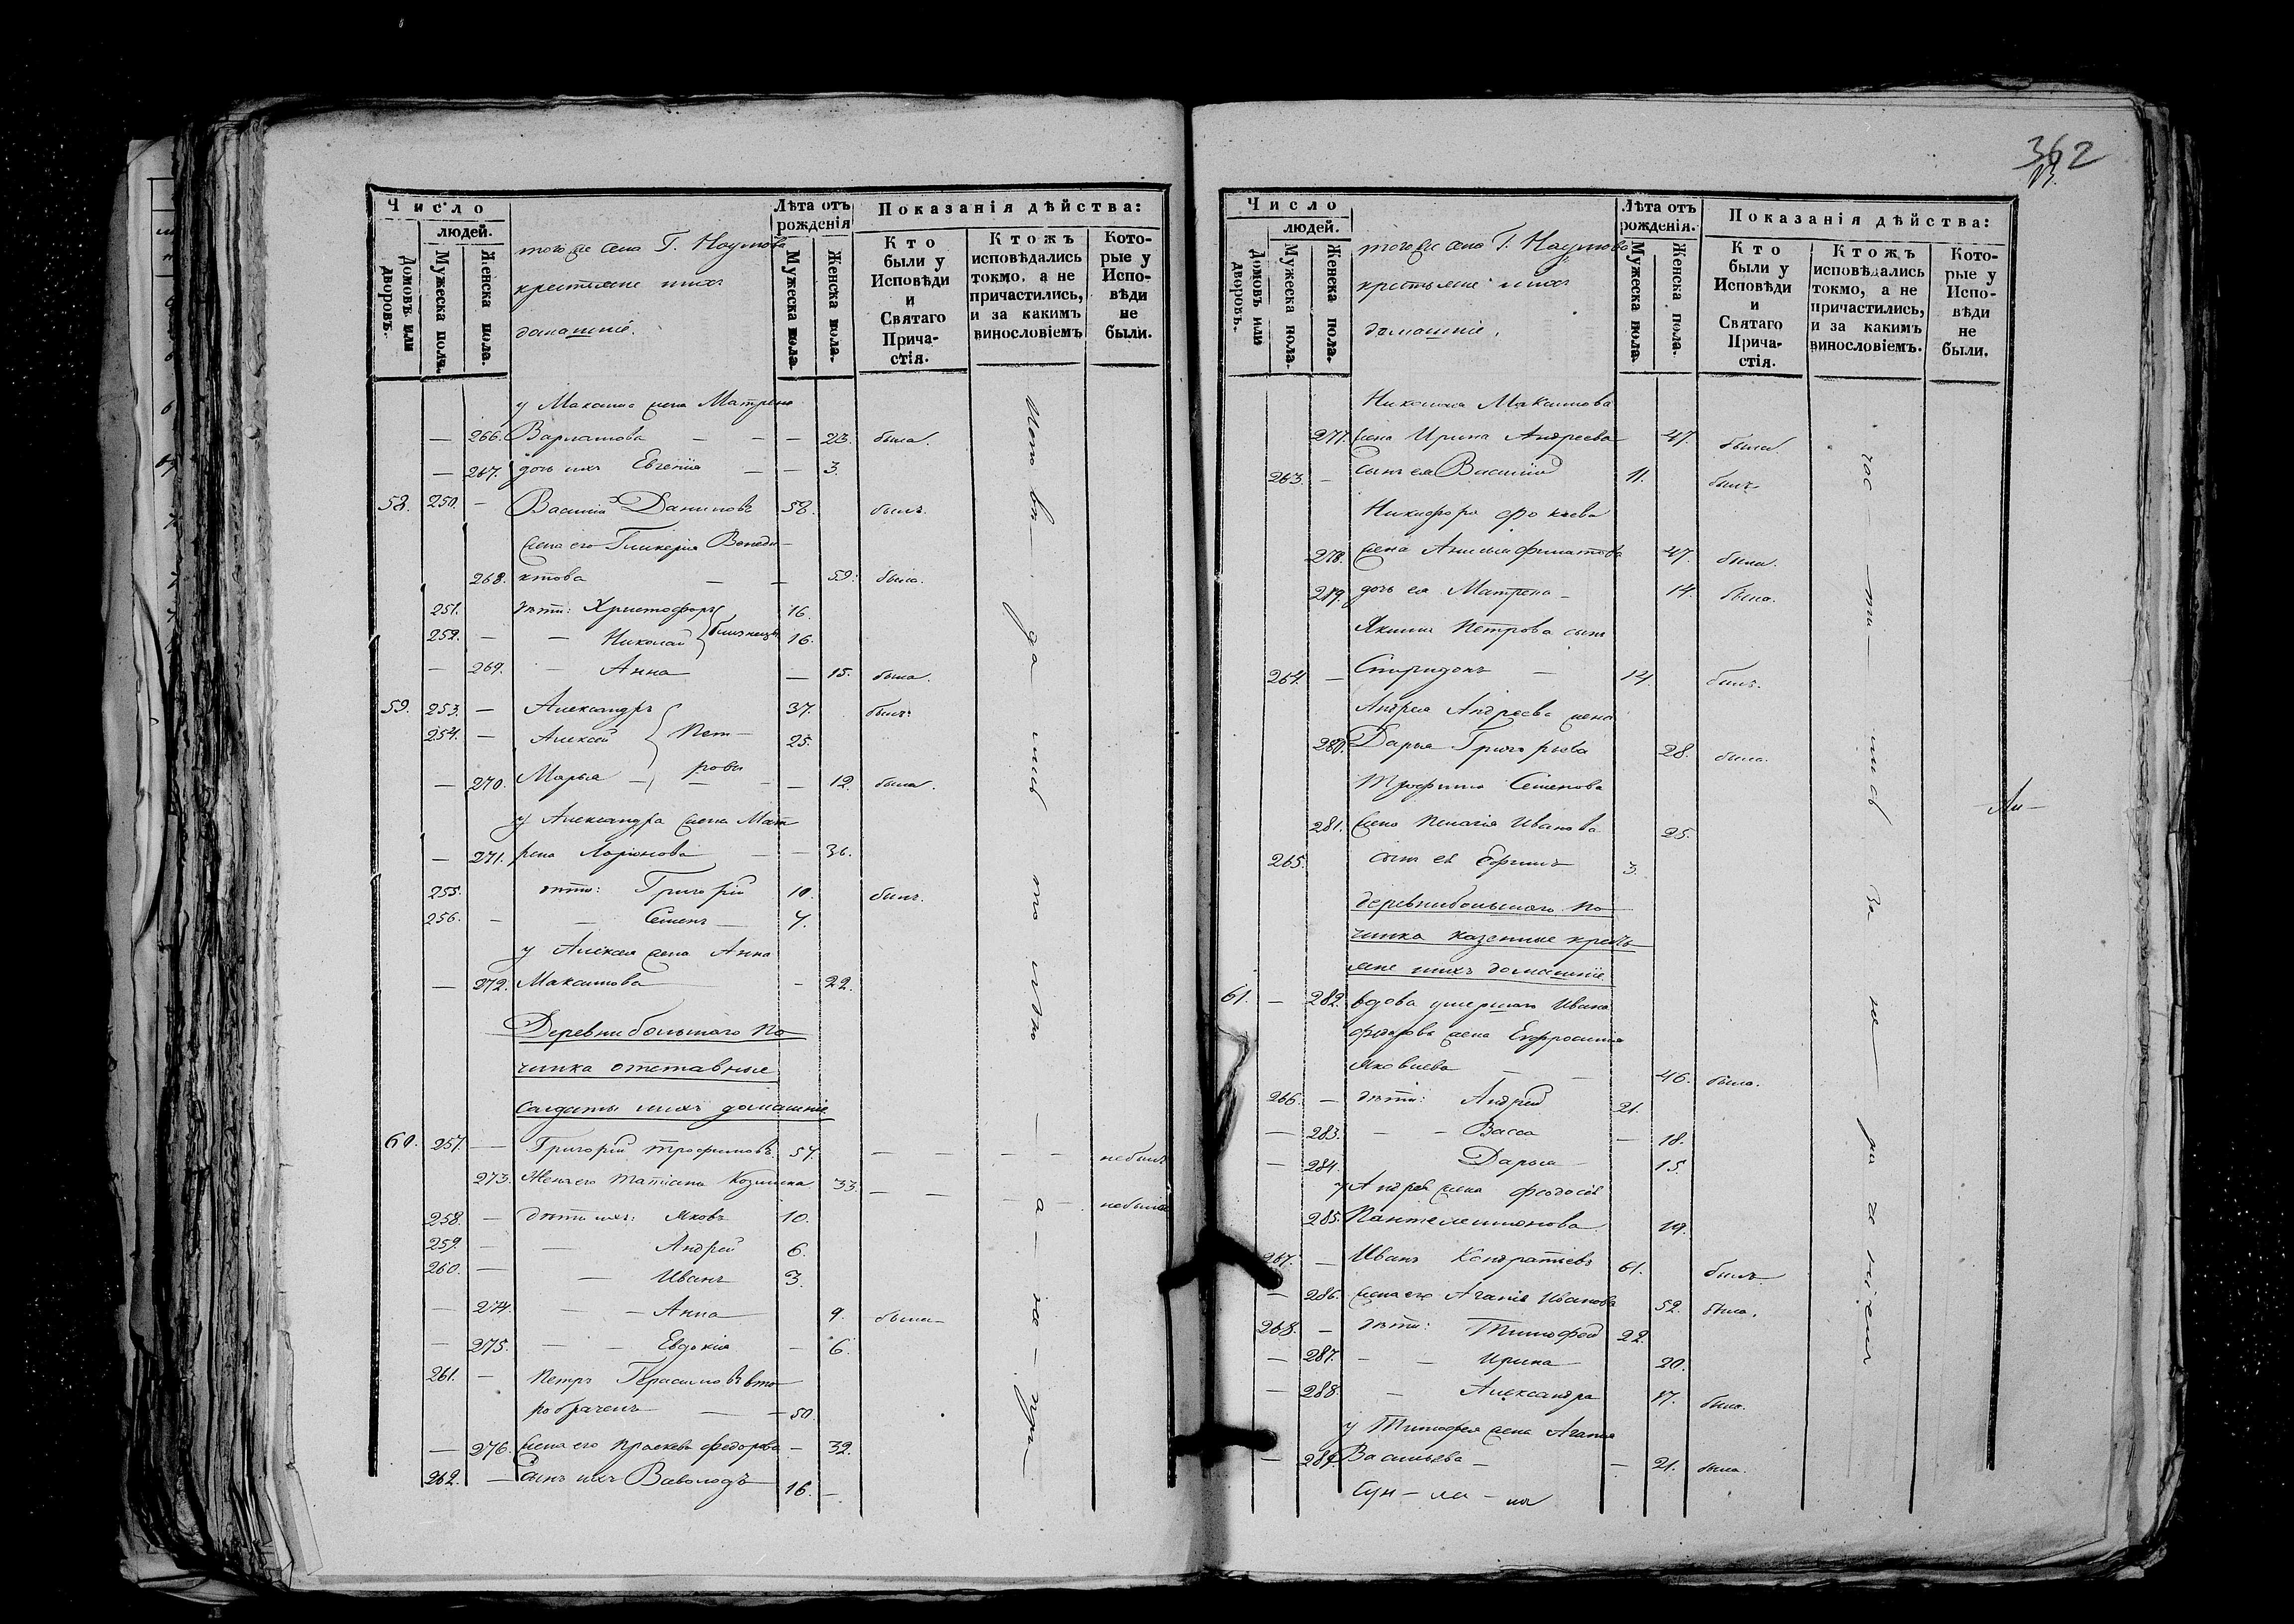 362
13.
Число
людей.
Домовъ или дворовъ.
Мужеска пола.
Женска пола.
тогоже села Г. Наумова
крестьяне ихъ
домашніе.
Лѣта отъ рожденія
Мужеска пола.
Женска пола.
Показанія дѣйства:
Кто были у Исповѣди и Святаго Причастія.
Ктожъ исповѣдались токмо, а не причастились, и за какимъ винословіемъ
Которые у Исповѣди не были.
у Максима жена Матрена
— 266. Варламова — — — 23. была.
— 267. дочь ихъ Евгенія — — 3.
58. 250. — Василій Даниловъ 58. былъ.
жена его Гликерія Венеди-
268. ктова — — 59. была.
251. дѣти: Христофоръ 16.
252. — — Николай близнецы 16.
— 269. — Анна — 15. была.
59. 253. — Александръ 37. былъ.
254. — Алексѣй Пет- 25.
— 270. Марья — ровы — — 12. была.
у Александра жена Мат
— 271. рена Ларіонова — — 36.
255. дѣти: Григорій 10. былъ.
256. — — Семенъ 7.
у Алексѣя жена Анна
— 272. Максимова — 22.
Деревни большаго По
чинка отставные
солдаты ихъ домашніе
60. 257. — Григорій Трофимовъ 57. — — — — небылъ
273. Жена его Татіана Козмина 33. — — — — небыла
258. — дѣти ихъ: Яковъ 10.
259. — — Андрей 6.
260. — — Иванъ 3.
— 274. — — Анна 9. была
— 275. — — Евдокія — 6.
261. — Петръ Герасимовъ вто
робраченъ — — 50.
— 276. жена его Праскева Федорова — 32.
262. — сынъ ихъ Ваволодъ 16. —
Число
людей.
Домовъ или дворовъ.
Мужеска пола.
Женска пола.
тогоже села Г. Наумова
крестьяне ихъ
домашніе.
Лѣта отъ рожденія.
Мужеска пола.
Женска пола.
Показанія дѣйства:
Кто были у Исповѣди и Святаго Причастія.
Ктожъ исповѣдались токмо, а не причастились, и за какимъ винословіемъ.
Которые у Исповѣди не были.
Николая Максимова
277. жена Ирина Андреева 47. была.
263. — сынъ ея Василій 11. былъ
Никифора Фокѣева
278. жена Анисья Филатова 47. была.
279. дочь ея Матрена — 14. была.
Якима Петрова сынъ
264. — Спиридонъ — 14. былъ.
Андрея Андреева жена
280. Дарья Григорьева 28. была.
Трофима Семенова
281. жена Пелагія Иванова 25.
265. сынъ ея Ефимъ 3.
деревни большаго По
чинка казенные кресть
яне ихъ домашніе
61. — 282. вдова умершаго Ивана
Федорова жена Евфросинія
Яковлева — — 46. была.
266. — дѣти: Андрей 21.
— 283. — — Васса — 18.
— 284. Дарья 15.
у Андрея жена Феодосія
285. Пантелеимонова 19.
267. — Иванъ Кондратьевъ 61. былъ
— 286. жена его Агапія Иванова 52. была.
268. — дѣти: Тимофей 22.
— 287. — — Ирина 20.
— 288. — Александра 17. была.
у Тимофея жена Агапія
— 289. Васильева — — 21. была.